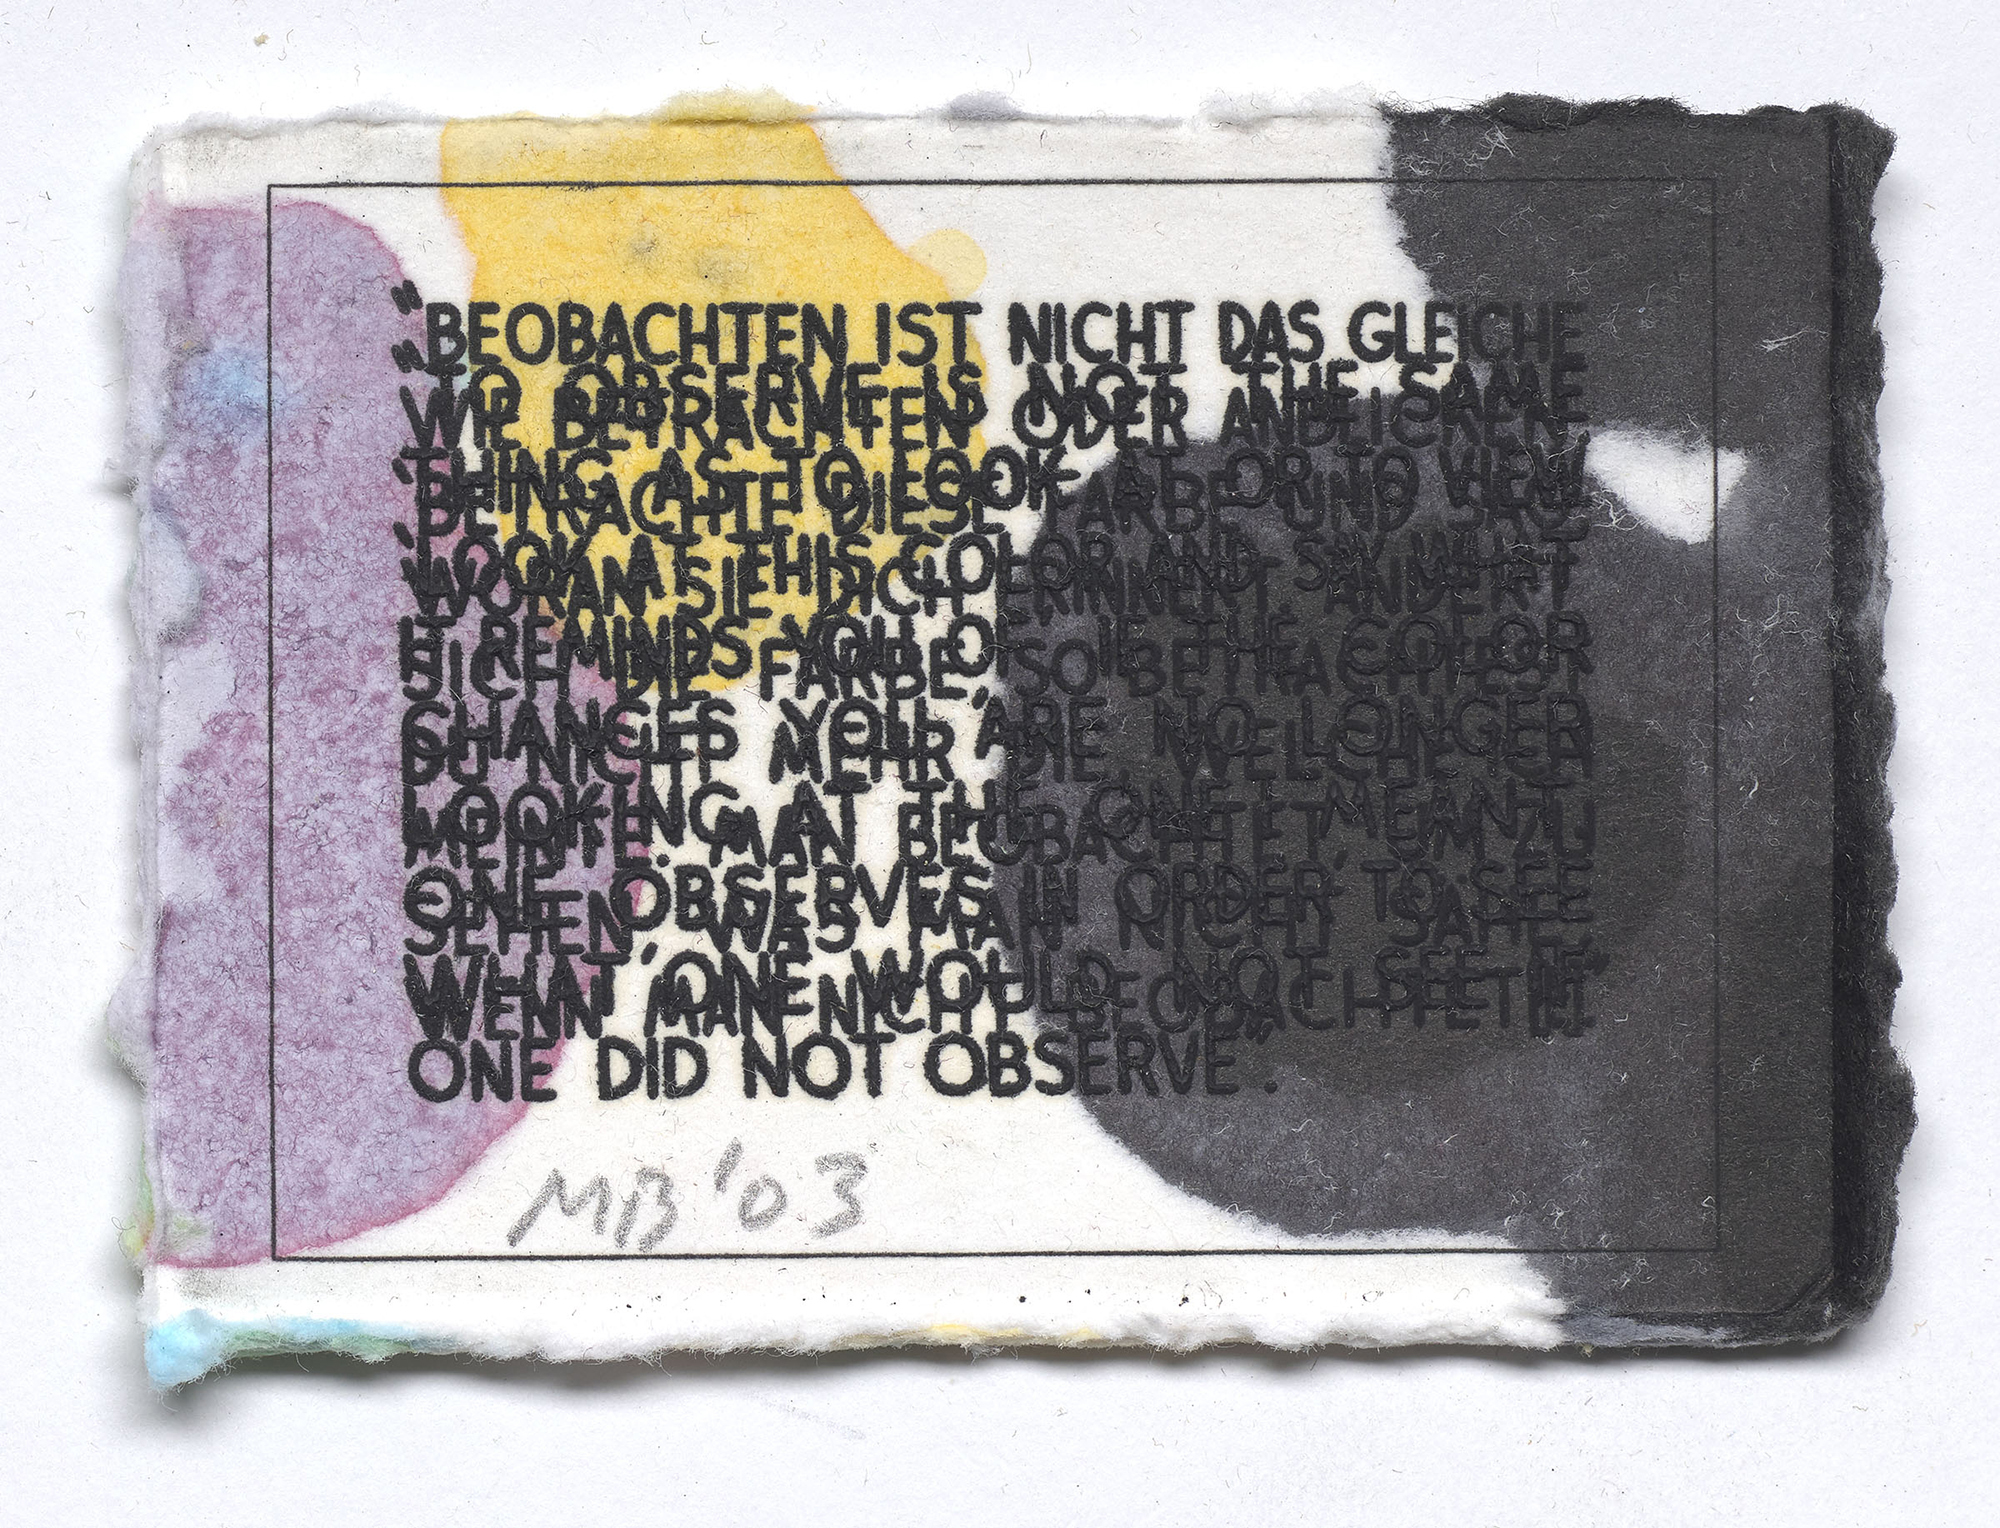 "BEOBACHTEN IST NICHT DAS GLEICHE
"TO OBSERVE IS NOT THE SAME
WIE BETRACHTEN ODER ANBLICKEN.
THING AS TO LOOK AT OR TO VIEW.
'BETRACHTE DIESE FARBE UND SAG,
'LOOK AT THIS COLOR AND SAY WHAT
WORAN SIE DICH ERINNERT.' ÄNDERT
IT REMINDS YOU OF'. IF THE COLOR
SICH DIE FARBE, SO BETRACHTEST
CHANGES YOU ARE NO LONGER
DU NICHT MEHR DIE, WELCHE ICH
LOOKING AT THE ONE I MEANT.
MEINTE. MAN BEOBACHTET, UM ZU
ONE OBSERVES IN ORDER TO SEE
SEHEN, WAS MAN NICHT SÄHE,
WHAT ONE WOULD NOT SEE IF
WENN MAN NICHT BEOBACHTETE"
ONE DID NOT OBSERVE".
MB '03